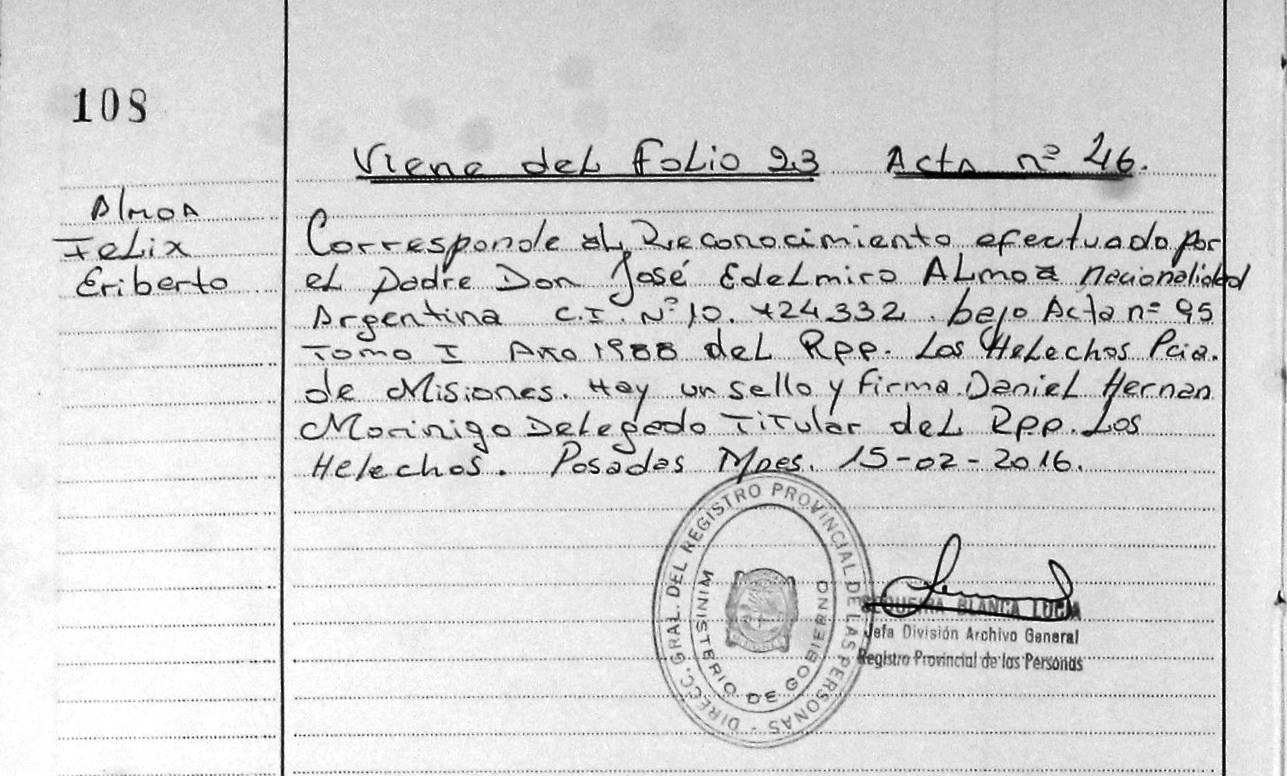 108
Viene del folio 23 Acta nº 46.
Almoa
Felix
Eriberto
Corresponde al Reconocimiento efectuado por
el padre Don José Edelmiro Almoa nacionalidad
Argentina C.I. Nº 10.424.332. bajo Acta nº 95
Tomo I Año 1988 del Rpp. Los Helechos Pcia.
de Misiones. Hay un sello y firma Daniel Hernan
Morinigo Delegado Titular del Rpp. Los
Helechos. Posadas Mnes. 15-02-2016.
DIRECC. GRAL. DEL REGISTRO PROVINCIAL DE LAS PERSONAS -
MINISTERIO DE GOBIERNO
SEQUEIRA BLANCA LUCIA
Jefa División Archivo General
Registro Provincial de las Personas